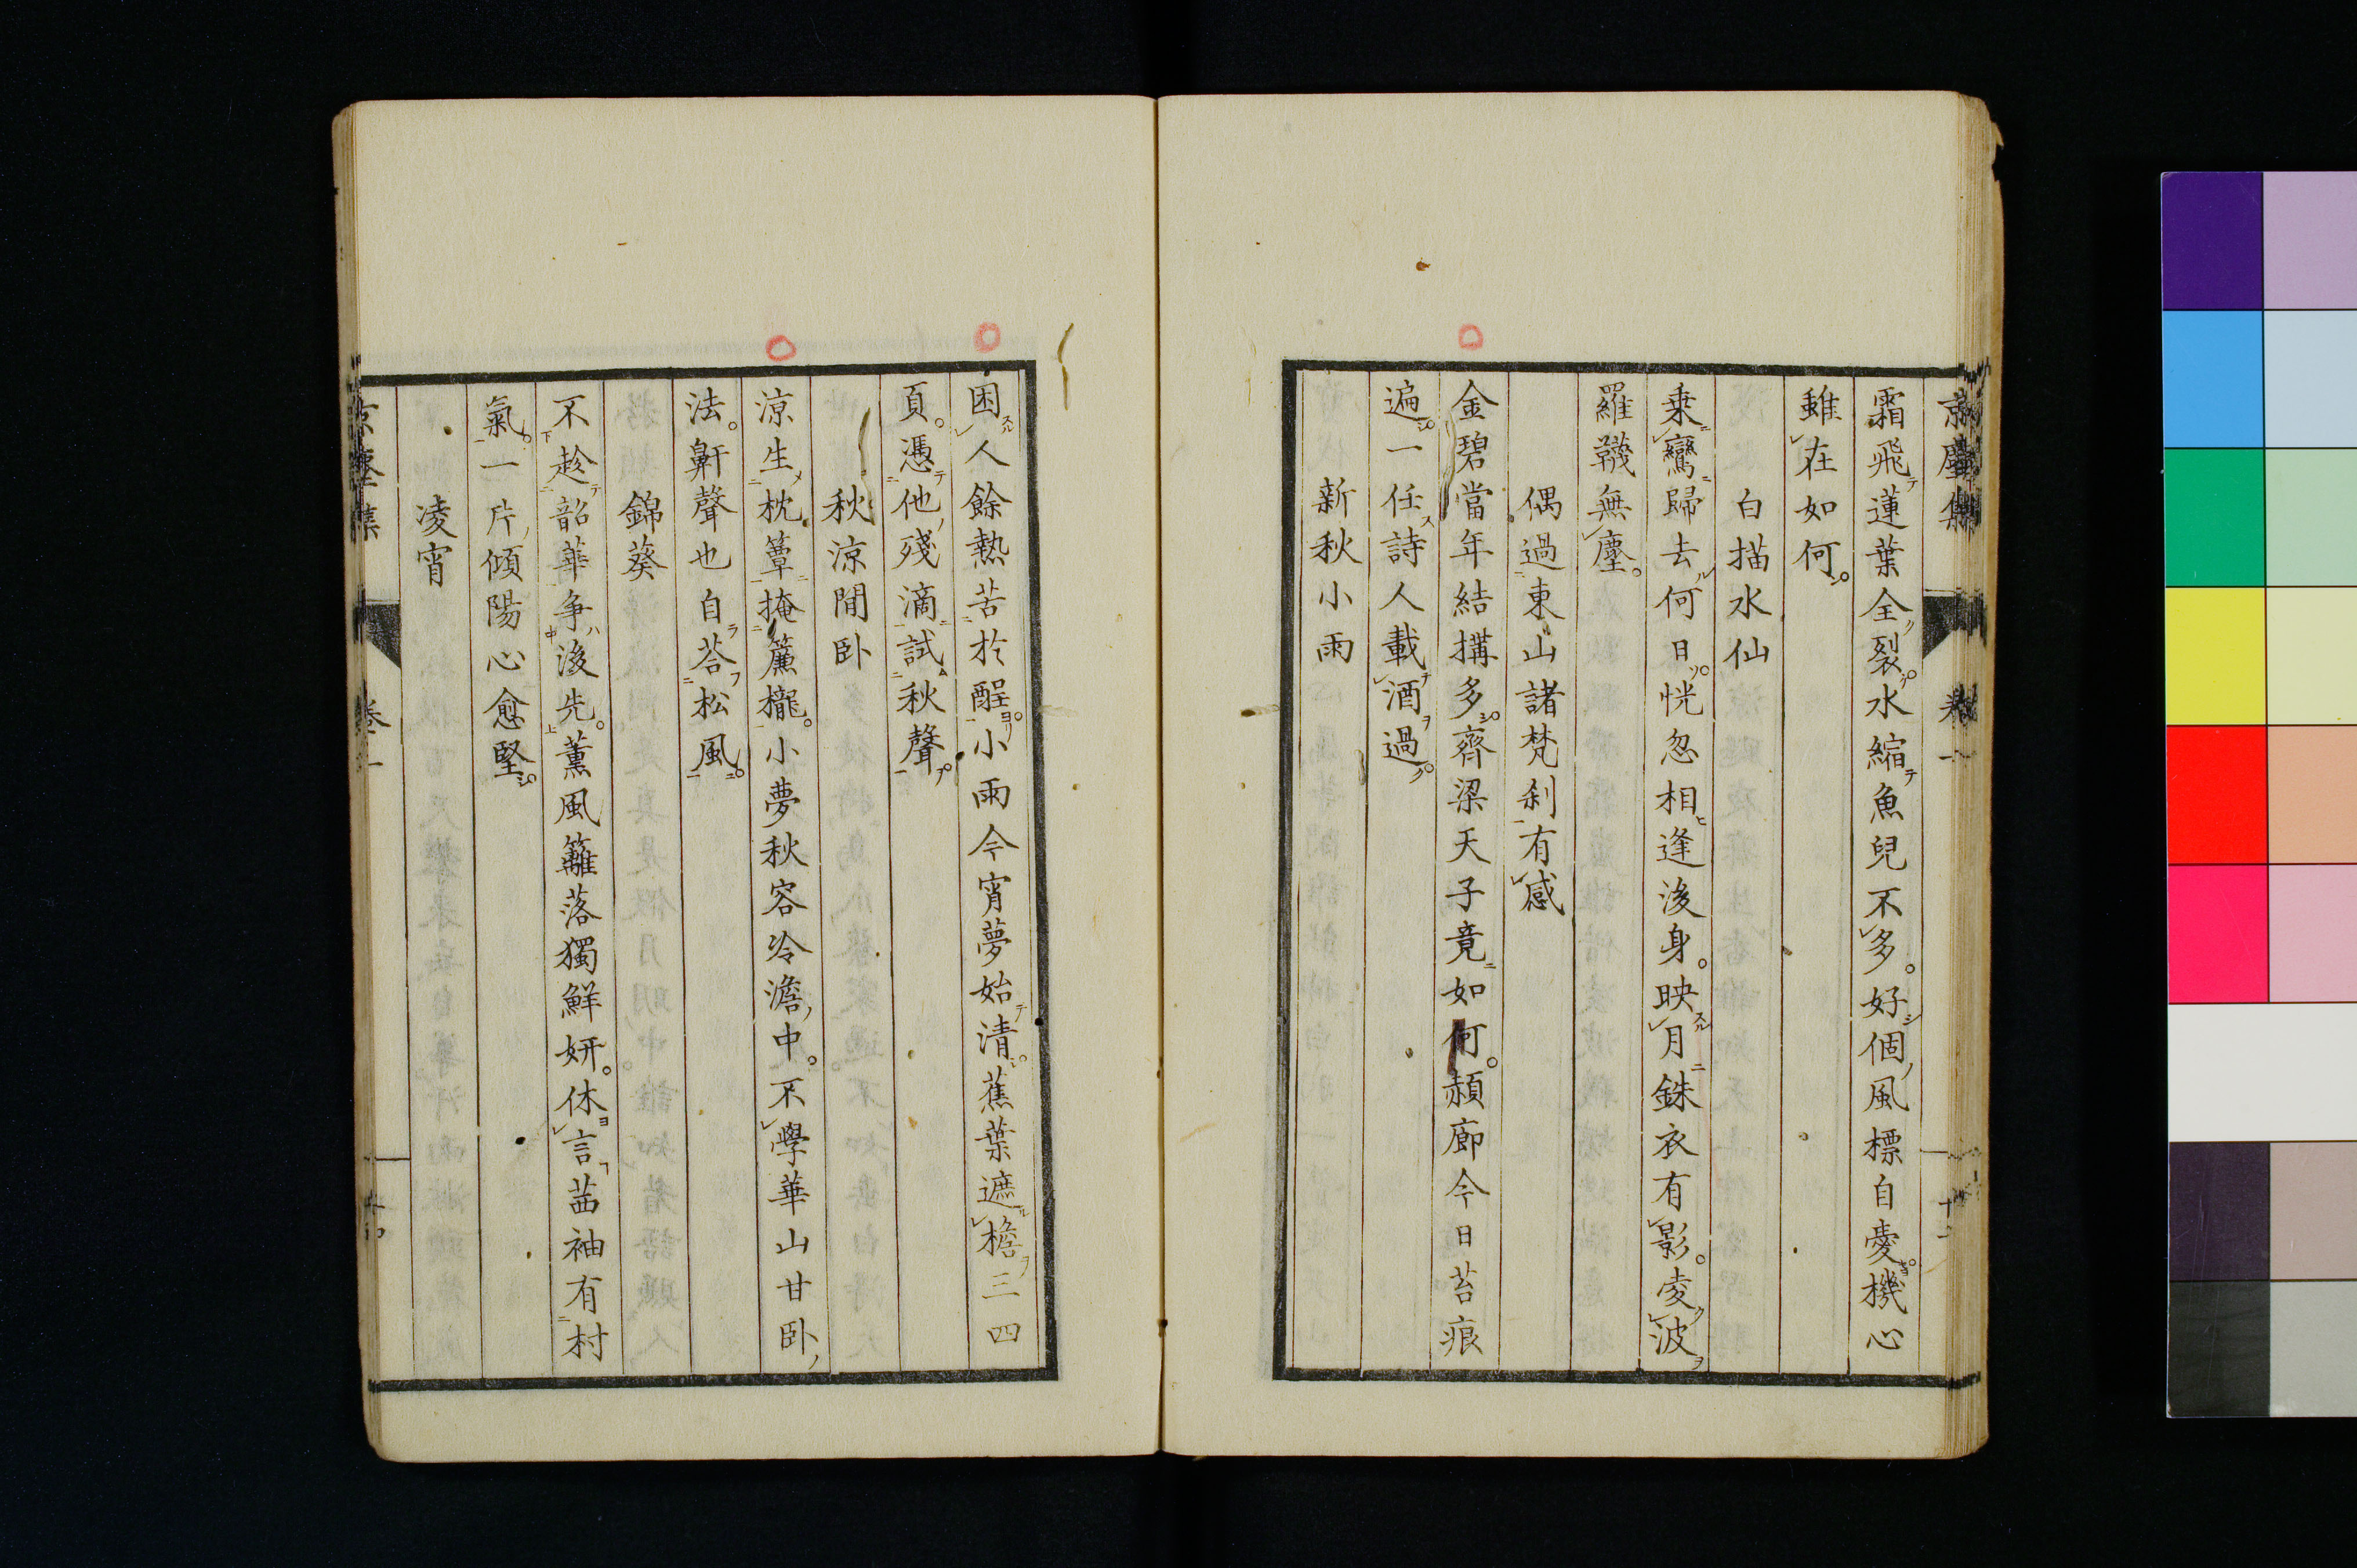 京塵集 卷一
霜飛蓮葉全裂水縮魚兒不多。好個風標自愛。機心
雖在如何。
白描水仙
乗鸞歸去何日。恍忽相逢後身。映月銖衣有影。凌波
羅韈無塵。
偶過東山諸梵刹有感
金碧當年結搆多。齊梁天子竟如何。頳廊今日苔痕
遍。一任詩人載酒過。
新秋小雨
困人餘熱苦於酲。小雨今宵夢始清。蕉葉遮檐三四
頁。憑他殘滴試秋聲。
秋涼閒卧
涼生枕簟掩簾櫳。小夢秋容冷澹中。不學華山甘卧
法。鼾聲也自荅松風。
錦葵
不趁韶華争後先。薰風籬落獨鮮妍。休言茁袖有村
氣。一片傾陽心愈堅。
凌宵
京塵集 卷一